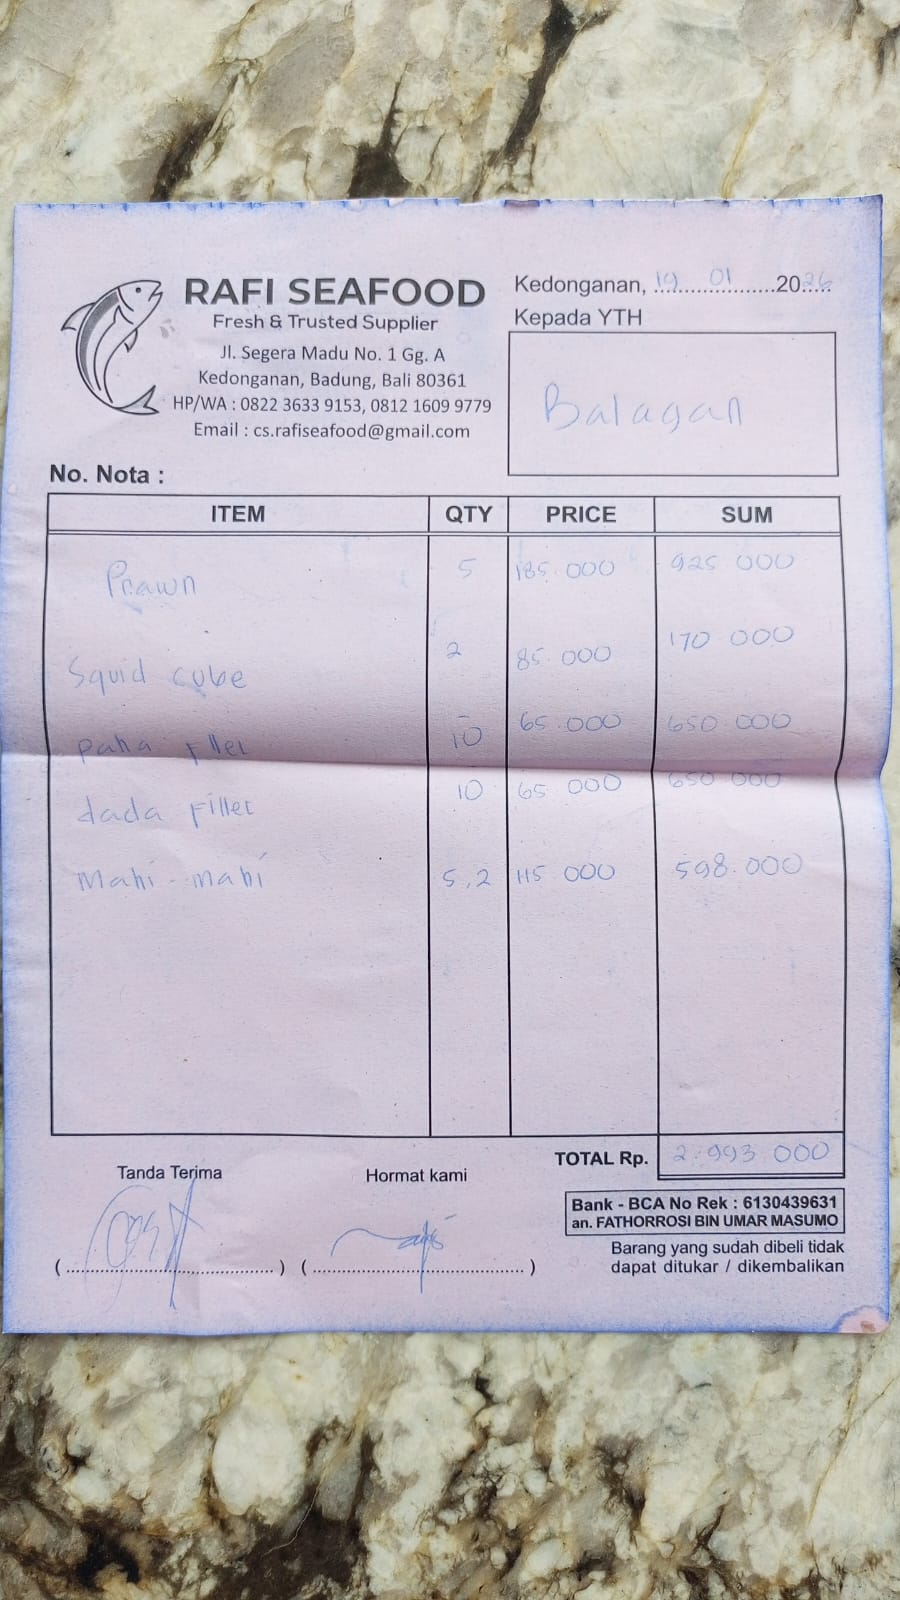 RAFI SEAFOOD
Fresh & Trusted Supplier
Jl. Segera Madu No. 1 Gg. A
Kedonganan, Badung, Bali 80361
HP/WA : 0822 3633 9153, 0812 1609 9779
Email : cs.rafiseafood@gmail.com
Kedonganan, 19 01 2026
Kepada YTH
Balagan
No. Nota :
ITEM QTY PRICE SUM
Prawn 5 185.000 925 000
Squid cube 2 85.000 170 000
paha fllet 10 65.000 650 000
dada fillet 10 65 000 650 000
Mahi-mahi 5,2 115 000 598.000
TOTAL Rp. 2.993 000
Tanda Terima Hormat kami
Bank - BCA No Rek : 6130439631
an. FATHORROSI BIN UMAR MASUMO
Barang yang sudah dibeli tidak
dapat ditukar / dikembalikan